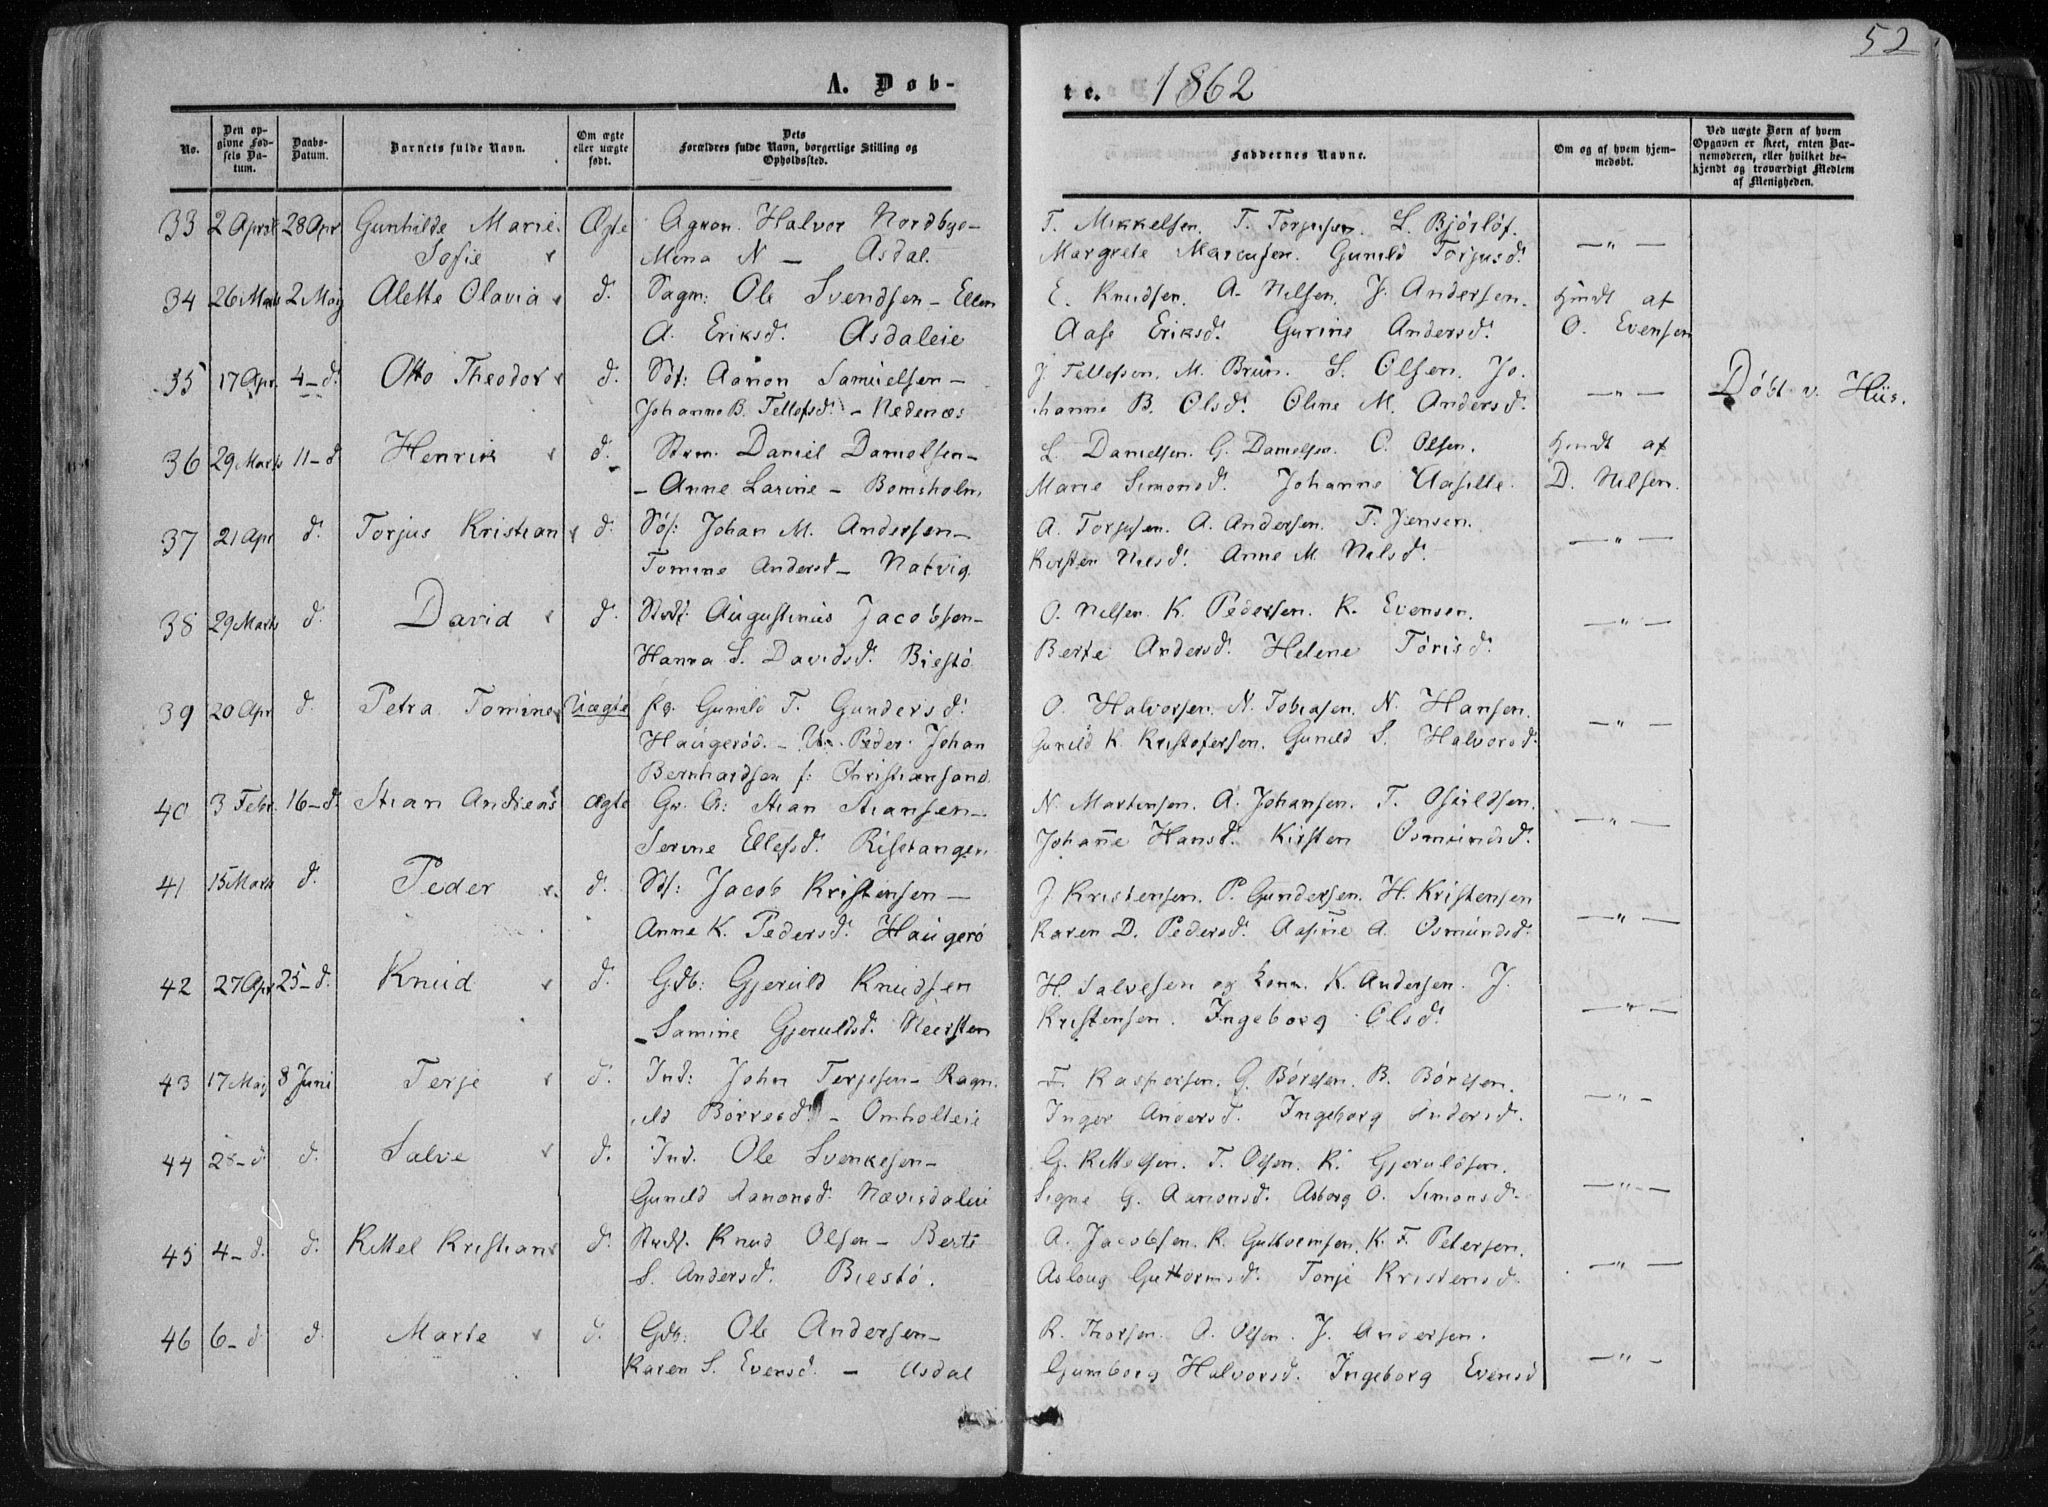 52
A. Døb-
te. 1862
No.
Den opgivne Fødsels Datum.
Daabs-Datum.
Barnets fulde Navn.
Om ægte eller uægte født.
Dets Forældres fulde Navn, borgerlige Stilling og Opholdssted.
Faddernes Navne.
Om og af hvem hjemmedøbt.
Ved uægte Børn af hvem Opgaven er skeet, enten Barnemoderen, eller hvilket bekjendt og troværdigt Medlem af Menigheden.
33 2 April 28 Apr Gunhilde Marie Ægte Agron. Halvor Nordbye- T. Mikkelsen. T. Torjusen. L. Bjørløf. —"—
Sofie Mina N — Asdal. Margrete Marcusen. Gunild Torjusd.
34 26 Marts 2 Maj Alette Olavia d. Sagm: Ole Svendsen - Ellen E. Knudsen. A. Nilsen. J. Andersen. Hjmdt af
A. Eriksd. Asdaleie Aase Eriksd. Gurine Andersd. O. Evensen
35 17 Apr. 4-d. Otto Theodor d. Sdf: Aanon Samuelsen — J. Tellefsen. M. Brun. S. Olsen. Jo- —"— Døbt v. Hiis.
Johanne B. Tellefsd. - Nedenæs hanne B. Olsd. Oline M. Andersd.
36 29 Marts 11-d Henrik d. Strm. Daniel Danielsen- L. Danielsen. G. Danielsen. O. Olsen. Hjmdt af
- Anne Larine - Bomsholm Marie Simonsd. Johanne Aasille. D. Nilsen.
37 21 Apr d. Torjus Kristian d. Søf: Johan M. Andersen- A. Torjusen. A. Andersen. T. Jensen. —"—
Tomine Andersd - Natvig Kirsten Nilsd. Anne M. Nilsd.
38 29 Marts d. David d. Strdf: Augustinus Jacobsen- O. Nilsen. K. Pedersen. K. Evensen. —"—
Hanna S. Davidsd. Biestø Berte Andersd. Helene Tørisd.
39 20 Apr d. Petra Tomine Uægte Pg. Gunild T. Gundersd. O. Halvorsen. N. Tobiasen. N. Hansen. —"—
Haugerød. - Uk. Peder Johan Gunild K. Kristofersen. Gunild S. Halvorsd.
Bernhardsen f: Christiansand.
40 3 Febr. 16-d. Stian Andreas Ægte Gr. A: Stian Stiansen- N. Martinsen. A. Johansen. T. Osuldsen. —"—
Serine Ellefsd. Risetangen Johanne Hansd. Kirsten Osmundsd.
41 15 Marts d. Peder d. Sdf: Jacob Kristensen — J Kristensen. P. Gundersen. H. Kristensen —"—
Anne K. Pedersd. Haugerø Karen D. Pedersd. Aasine A. Osmundsd.
42 27 Apr 25-d. Knud d. Gdb: Gjeruld Knudsen H. Salvesen og kone. K. Andersen. J. —"—
- Samine Gjeruldsd. Neersten Kristensen. Ingeborg Olsd.
43 17 Maj 8 Juni Terje d. Ind: John Terjesen - Ragn- F. Kaspersen. G. Børesen. B. Børesen. —"—
ild Børresd. - Omholteie Inger Andersd. Ingeborg Andersd.
44 28-d d. Salve d. Ind. Ole Svenkesen- G. Kittelsen. T. Olsen. K. Gjeruldsen. —"—
Gunild Aanonsd. Nævisdaleie Signe G. Aanonsd. Asborg O. Simonsd.
45 4-d. d. Kittel Kristian d. Strdf. Knud Olsen - Berte A. Jacobsen. K. Guttormsen. K. F. Petersen. —"—
S. Andersd. Biestø. Asloug Guttormsd. Tonje Kristensd.
46 6-d d Marte d. Gdb: Ole Andersen- R. Thorsen. A. Olsen. J. Andersen. —"—
Karen S. Evensd. - Asdal Gumborg Halvorsd. Ingeborg Evensd